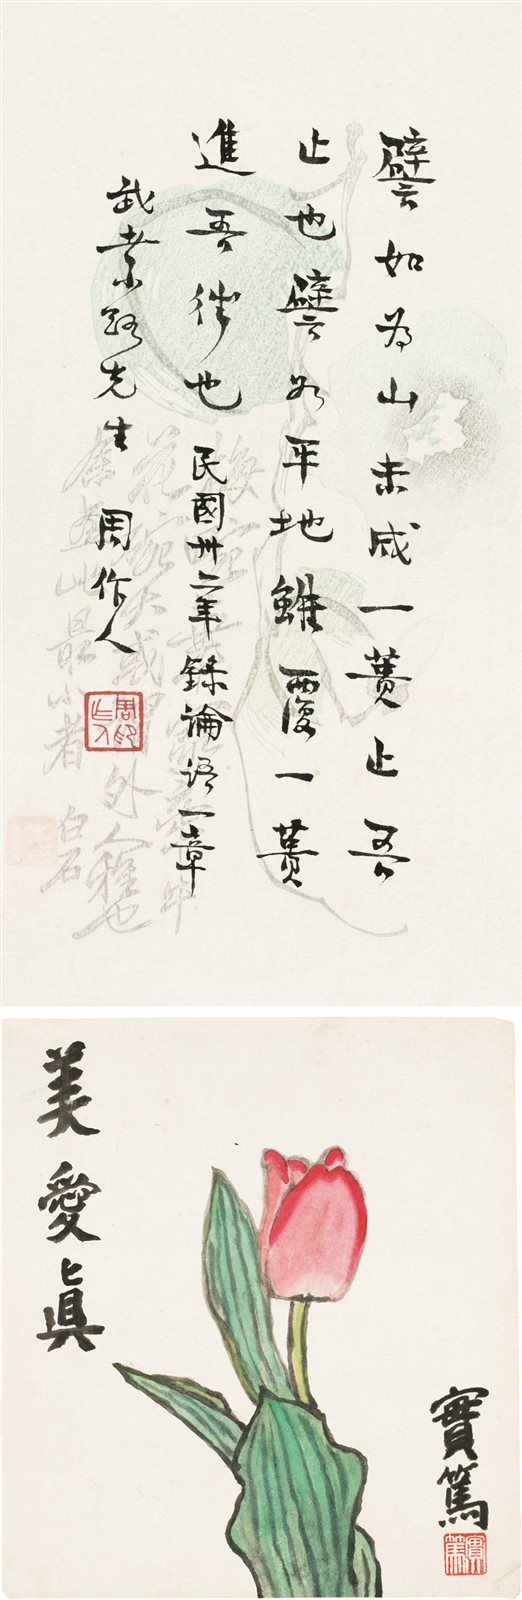 譬如為山未成一蕢止吾
止也譬如平地雖覆一蕢
進吾往也 民國卅二年錄論語一章
武者小路先生 周作人
周作人印
外人種也
最小者 白石
美愛眞
實篤
實篤